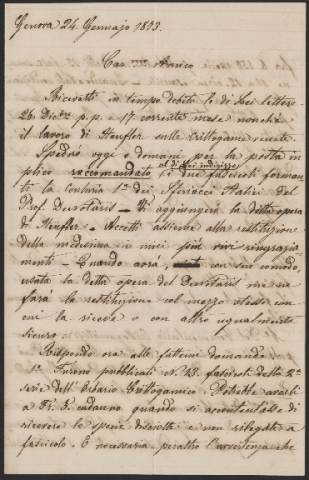 Genova 24. Gennajo 1873.
Car.mo Amico
Ricevetti in tempo debito le di Lei Lettere
26. Dicbre p. p. e 17. corrente mese nonchè
il lavoro di Heufler sulle crittogame venete.
Spedrò oggi o domani per la posta in
plico raccomandato al di Lei indirizzo i due fascicoli forman
ti la centuria 1ª dei Sferiacei Italici del
Prof. Denotaris - Vi aggiungerò la detta opera
di Heufler - Accetti assieme alla restituzione
della medesima i miei più vivi ringrazia
menti - Quando avrà, con suo comodo,
usata la detta opera del Denotaris me ne
farà la restituzione col mezzo stesso con
cui la riceve o con altro ugualmente
sicuro.
Rispondo ora alle fattemi domande
1º Furono pubblicati N. 43. fascicoli della 2ª
serie dell'Erbario Crittogamico. Potrebbe averli
a Fr. 5. cadauno quando si accontentasse di
ricevere le specie disciolte e non rilegate a
fascicolo. È necessaria peraltro l'avvertenza che